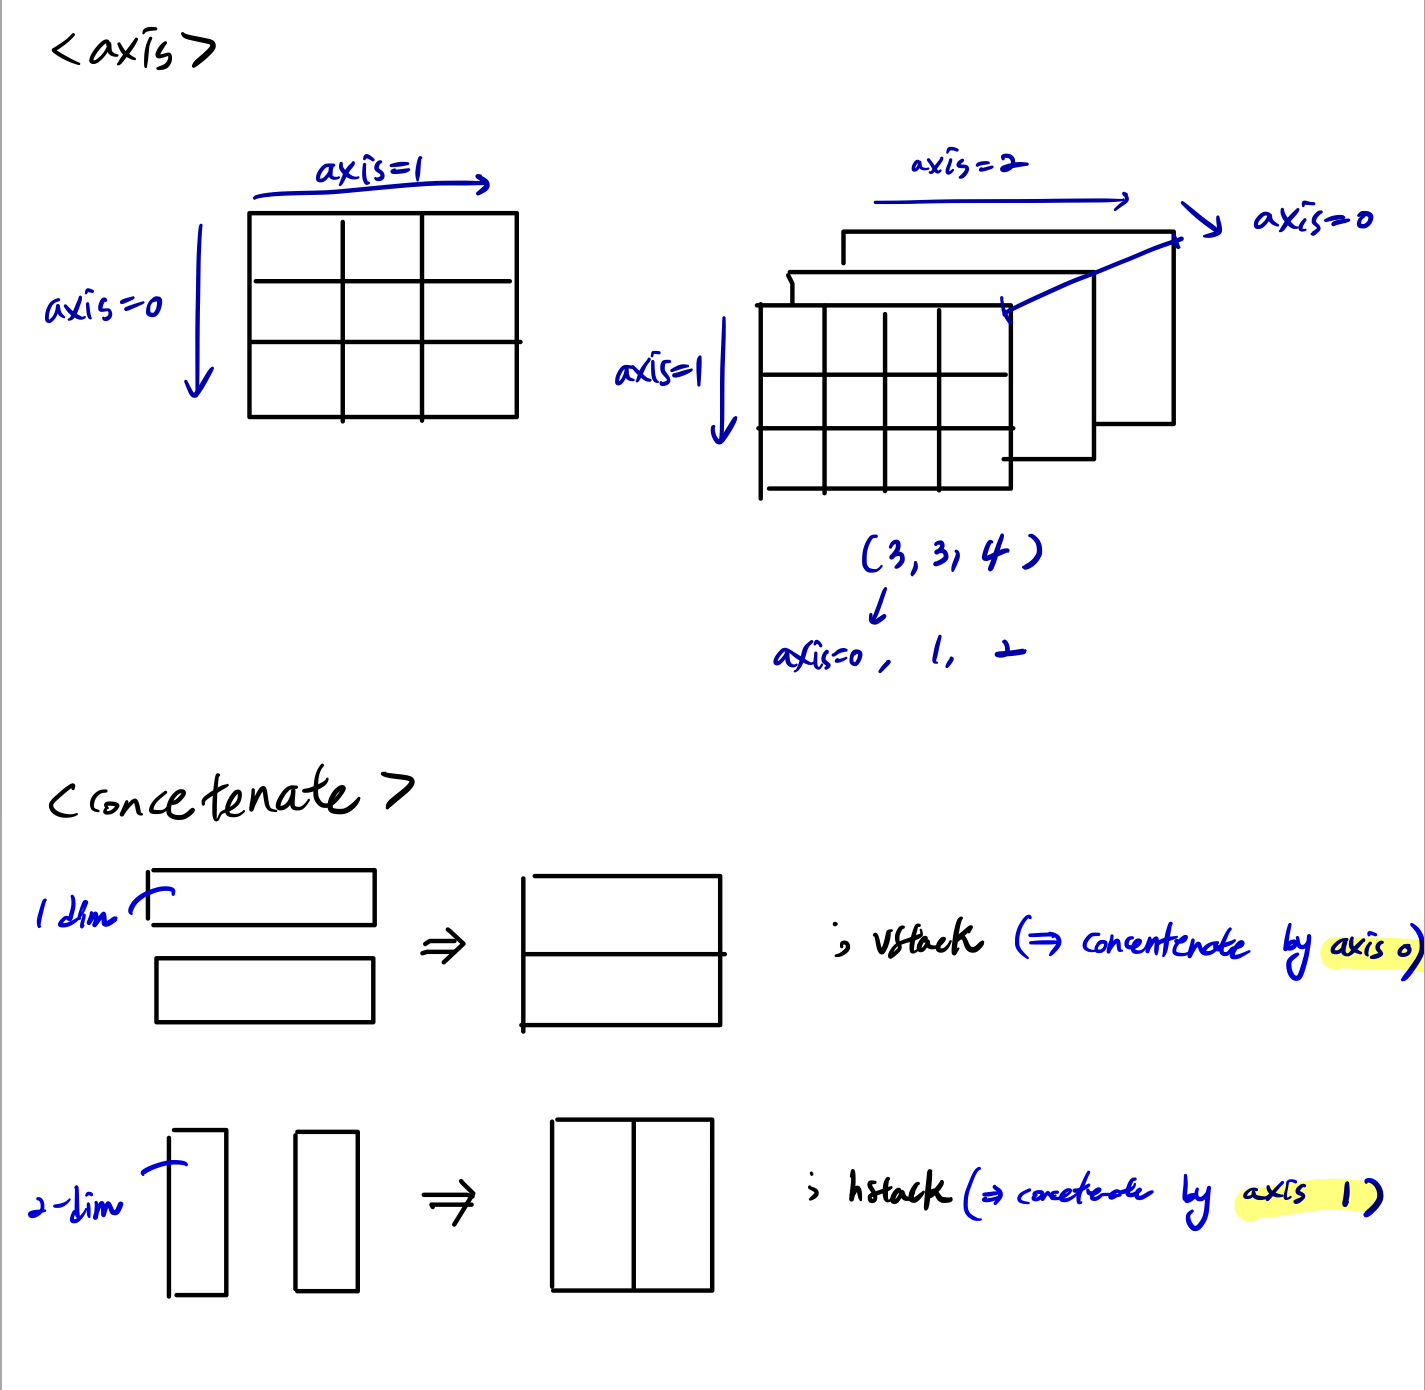 <axis>
axis=1
axis=0
axis=2
axis=0
axis=1
(3, 3, 4)
axis=0, 1, 2
<concetenate>
1 dim
; vstack (⇒ concentenate by axis 0)
2-dim
; hstack (⇒ concetenate by axis 1)